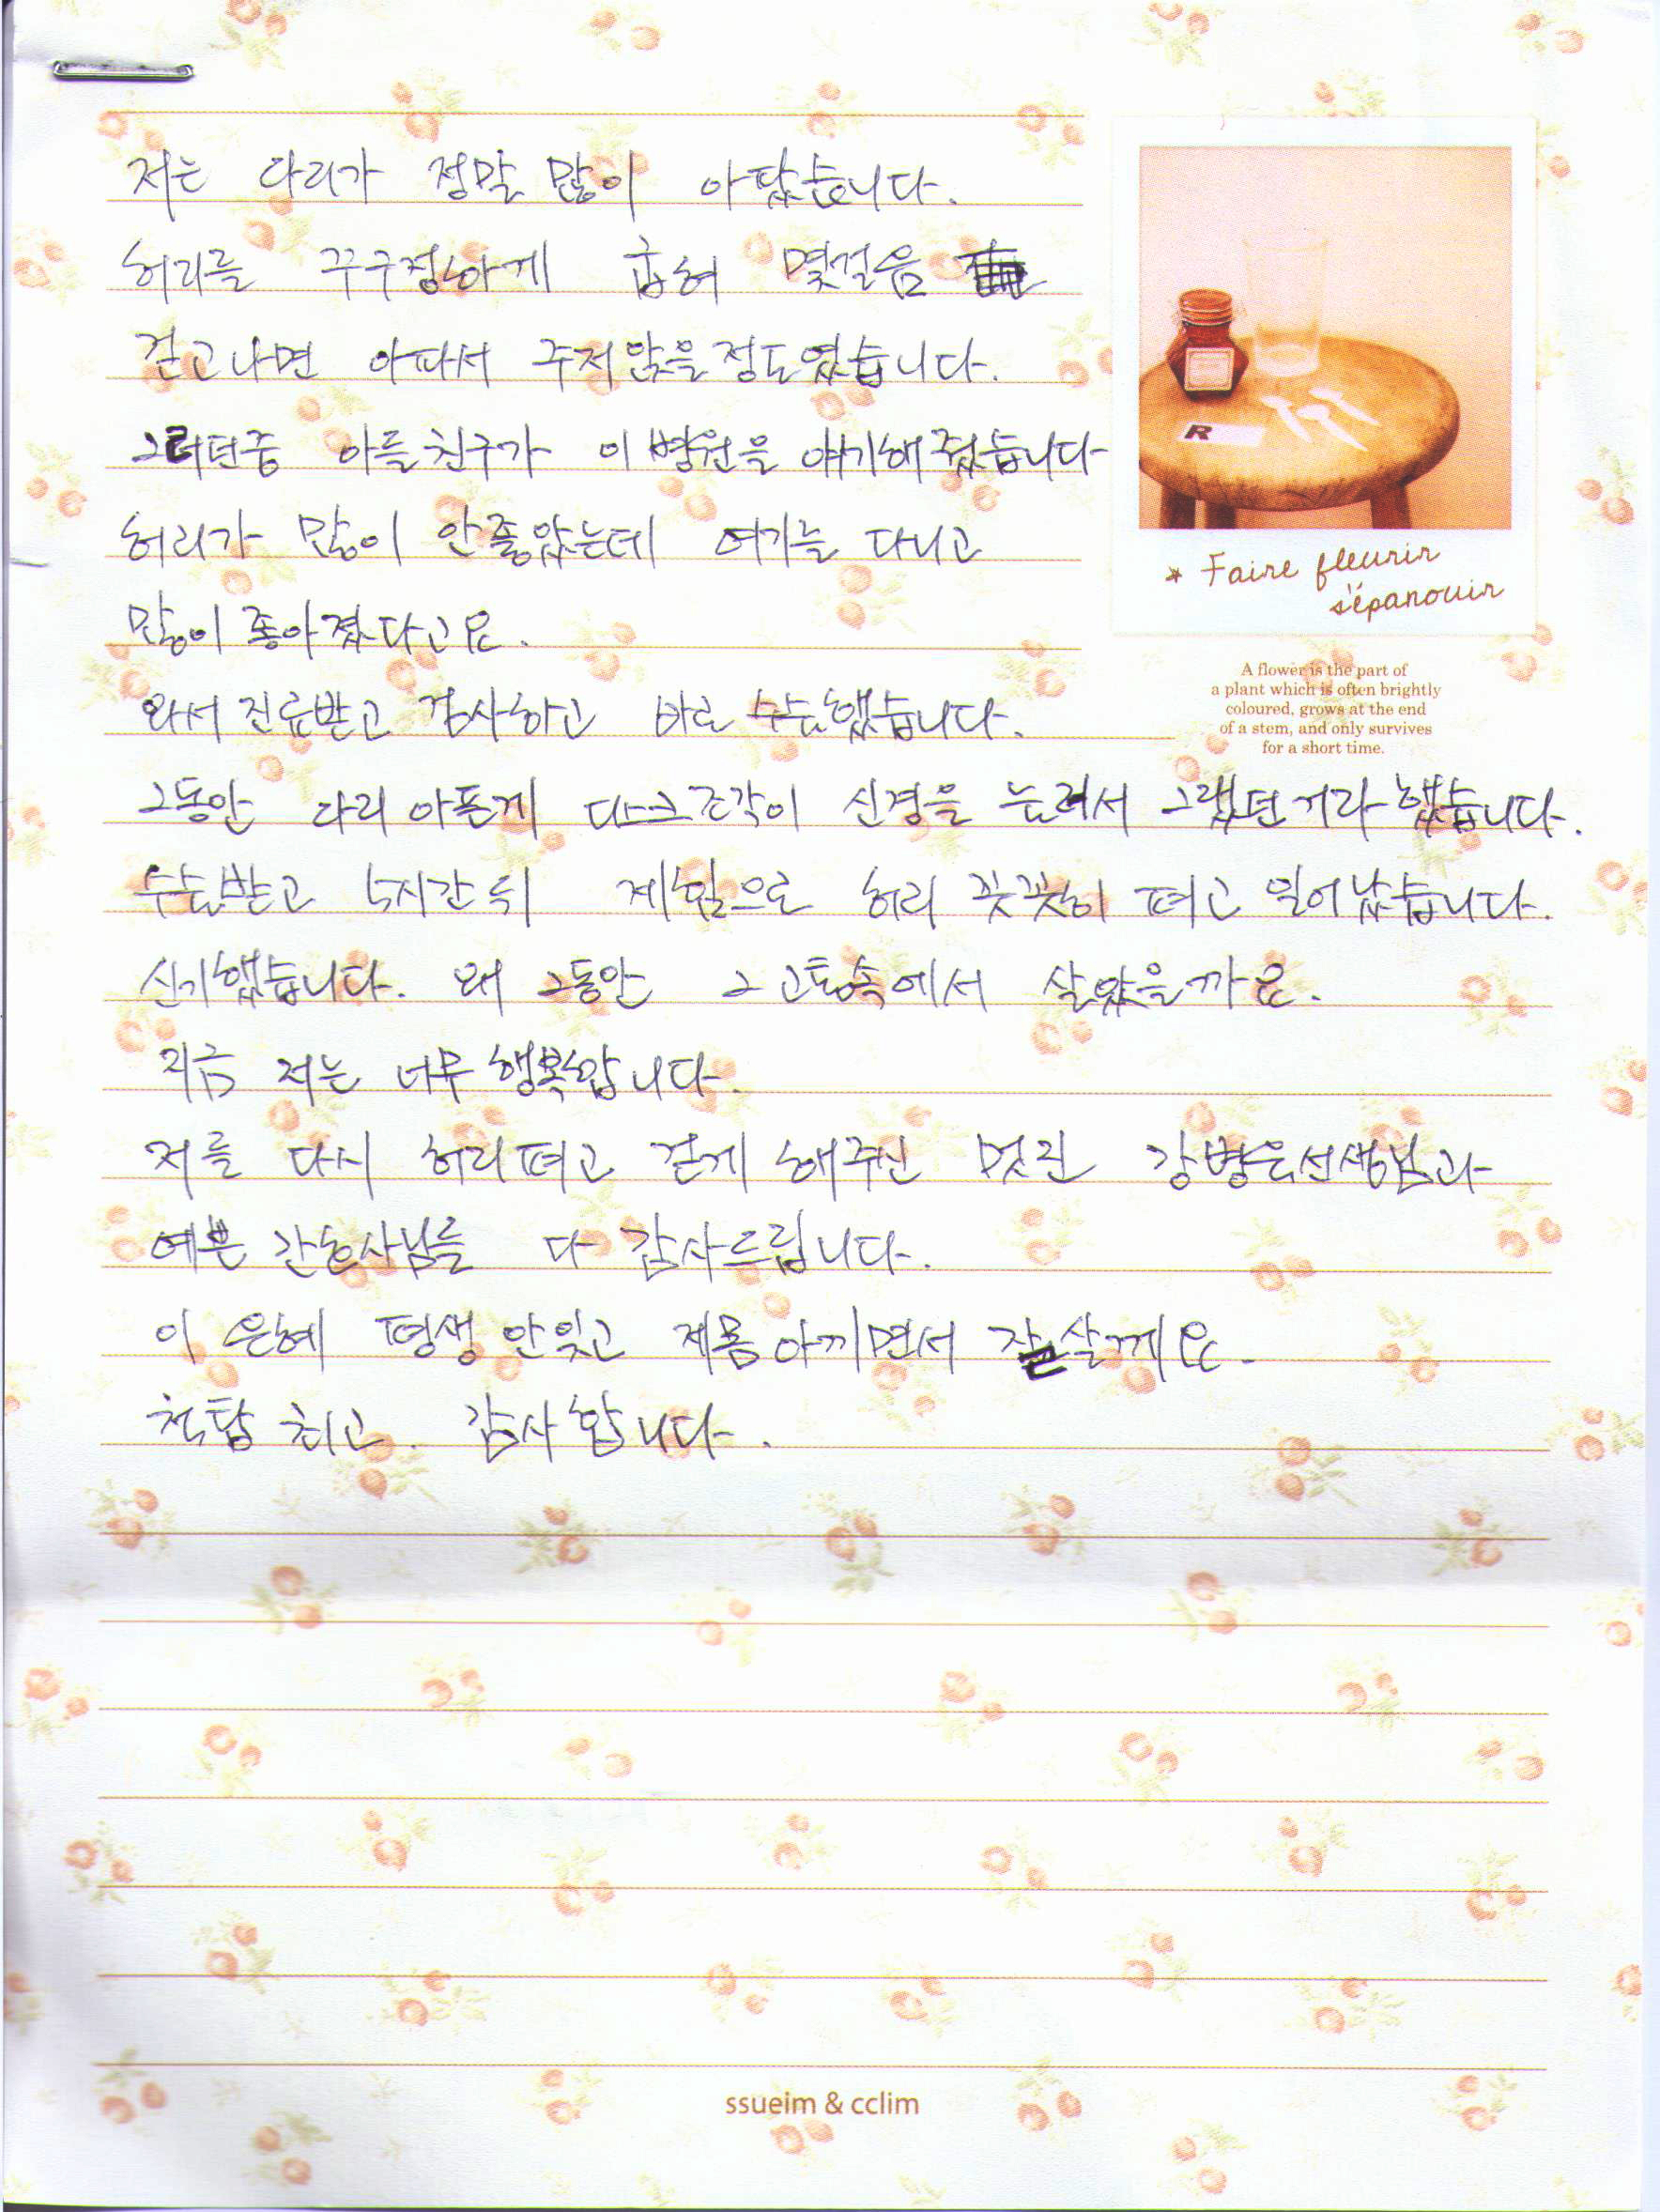 저는 다리가 정말 많이 아팠습니다.
허리를 꾸구정하게 굽혀 몇걸음
걷고나면 아파서 주저앉을정도였습니다.
그러던중 아들친구가 이 병원을 얘기해줬습니다
허리가 많이 안좋았는데 여기를 다니고
많이좋아졌다고요.
와서 진료받고 검사하고 바로 수술했습니다.
그동안 다리아픈게 디스크조각이 신경을 눌려서 그랬던거라했습니다.
수술받고 5시간뒤 제힘으로 허리 꼿꼿히 펴고 일어났습니다.
신기했습니다. 왜 그동안 그 고통속에서 살았을까요.
지금 저는 너무 행복합니다.
저를 다시 허리펴고 걷게 해주신 멋진 강병은선생님과
예쁜 간호사님들 다 감사드립니다.
이 은혜 평생 안잊고 제몸아끼면서 잘살께요.
척탑 최고. 감사합니다.
R
* Faire fleurir
s'épanouir
A flower is the part of
a plant which is often brightly
coloured, grows at the end
of a stem, and only survives
for a short time.
ssueim & cclim